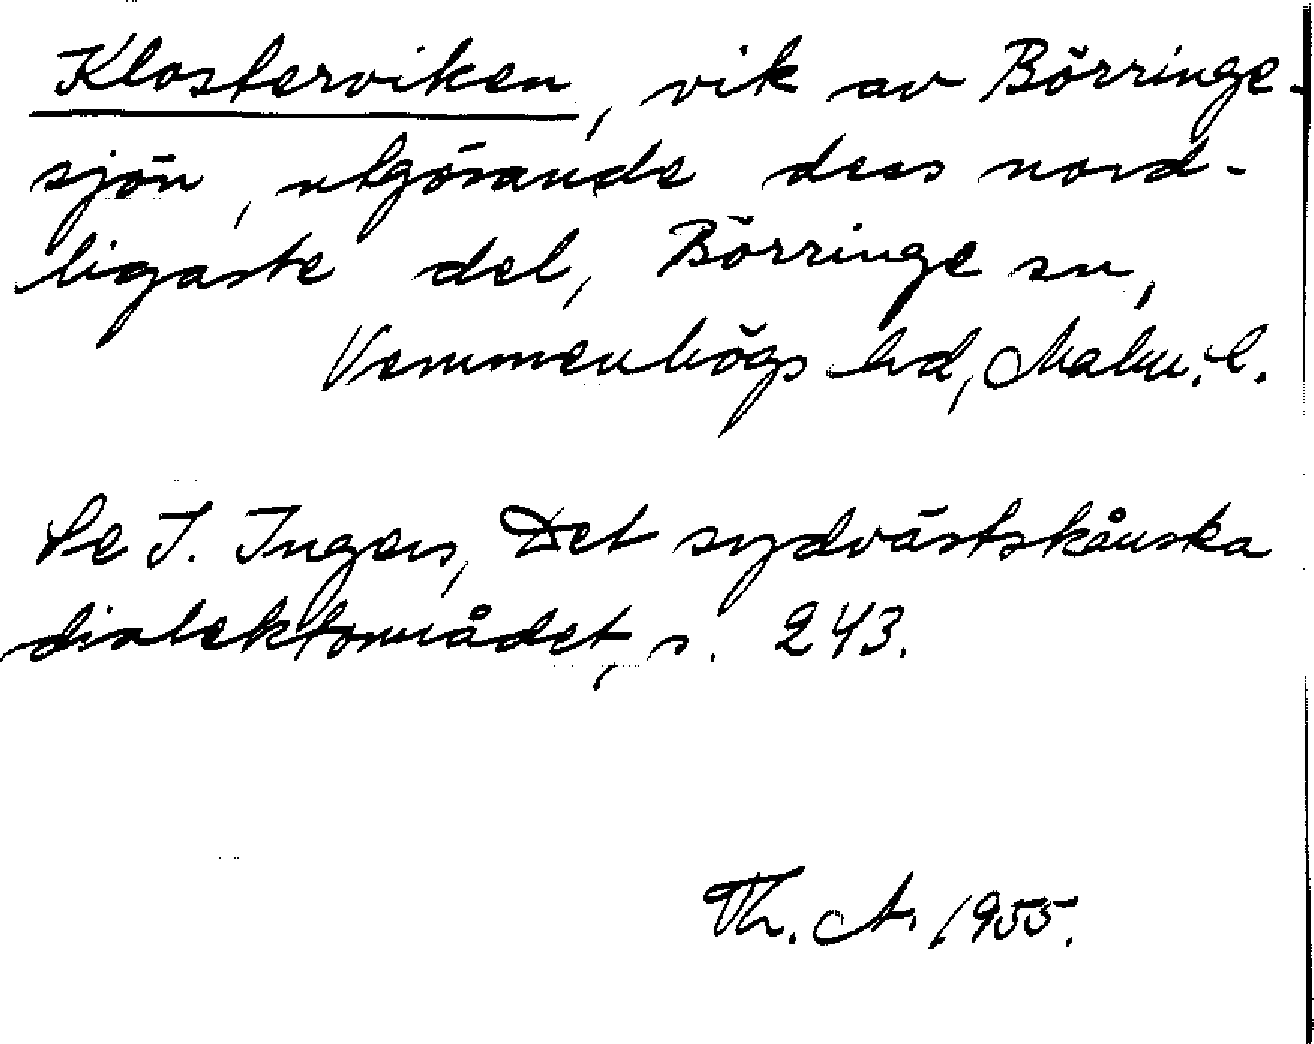 Klosterviken, vik av Börringe-
sjön, utgörande dess nord-
ligaste del, Börringe sn,
Vemmenhögs hd, Malm. l.
Se I. Ingers, Det sydvästskånska
dialektområdet, s. 243.
Th. A. 1955.